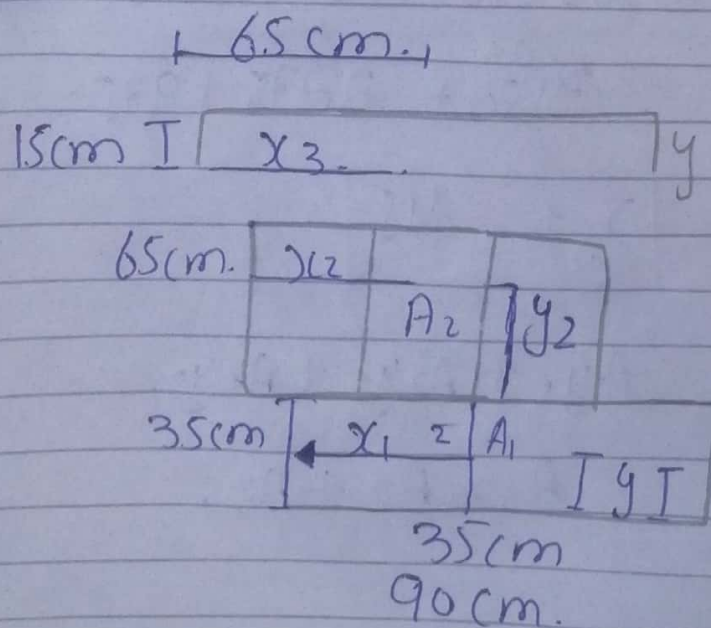 65cm.
15cm I x3. y
65cm. x2
A2 y2
35cm x1 2 A1
I y I
35cm
90cm.